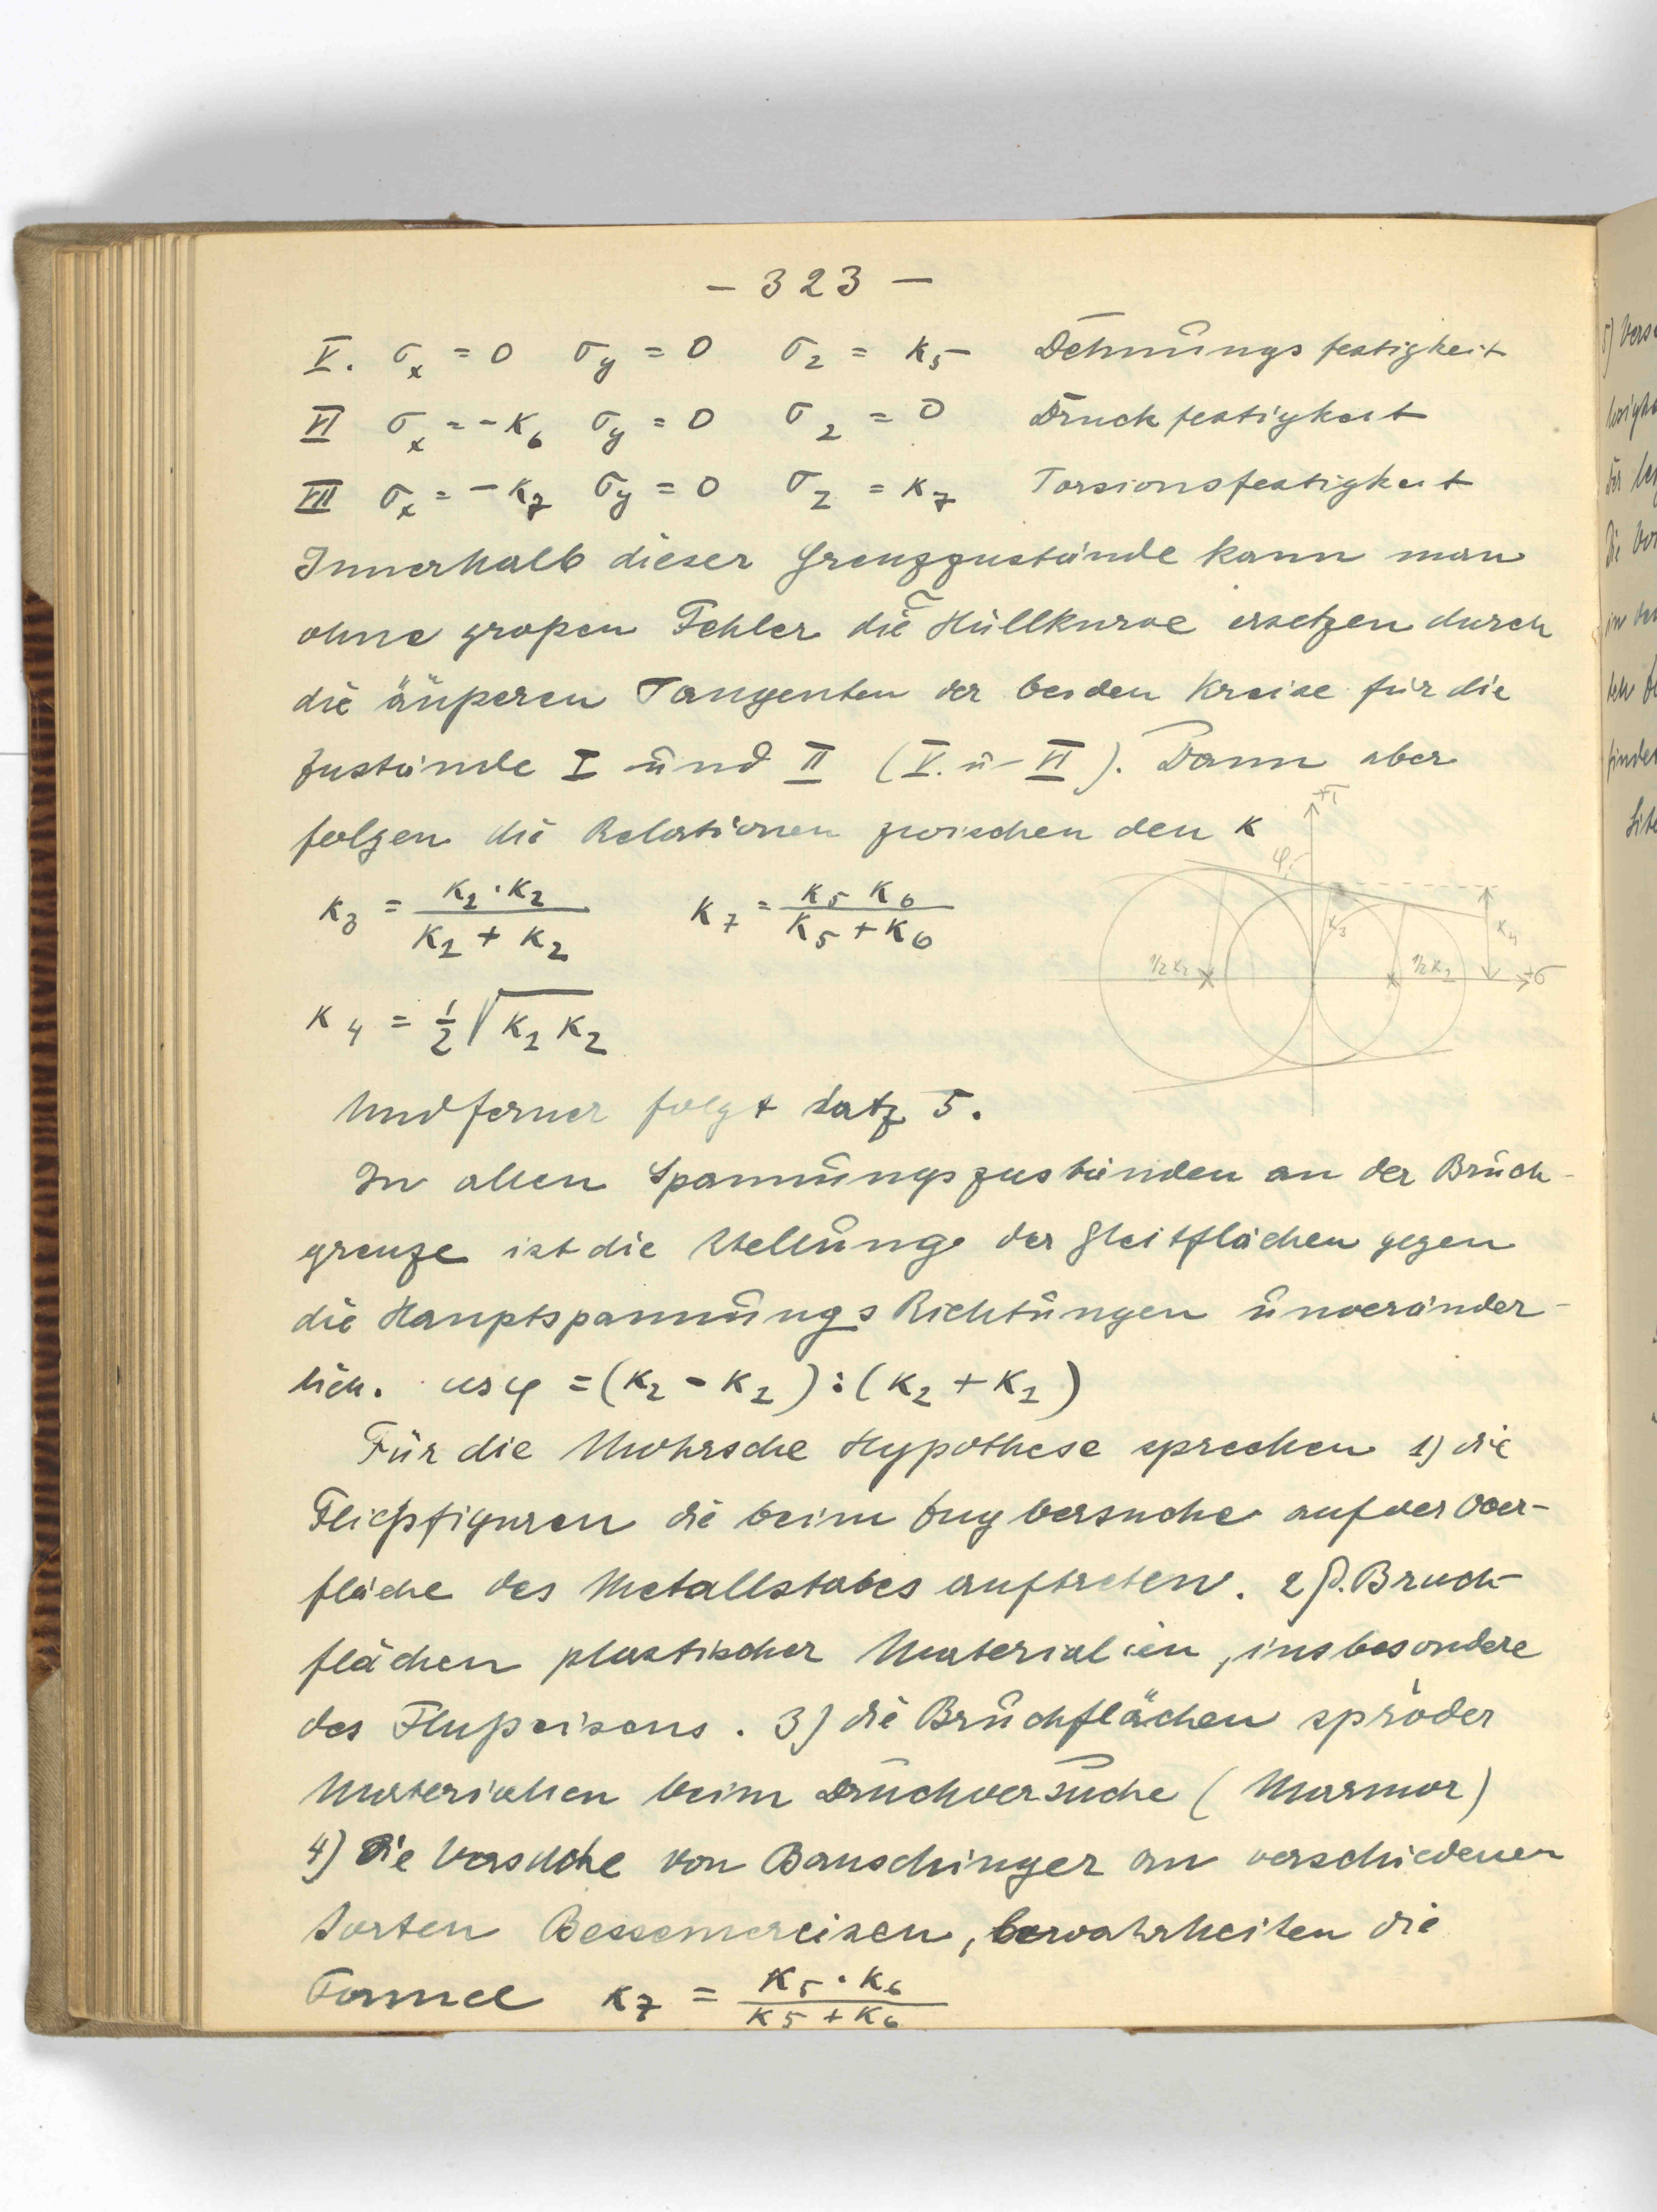 – 323 –
V. σx = 0 σy = 0 σz = K5 Dehnungsfestigkeit
VI σx = -K6 σy = 0 σz = 0 Druckfestigkeit
VII σx = -K7 σy = 0 σz = K7 Torsionsfestigkeit
Innerhalb dieser Grenzzustände kann man
ohne großen Fehler die Hüllkurve ersetzen durch
die äußeren Tangenten der beiden Kreise für die
Zustände I und II (V. u. VI). Dann aber
folgen die Relationen zwischen den K
K3 = K1·K2 / K1 + K2 K7 = K5 K6 / K5 + K6
+τ
φ
K3
K4
½K1
½K2
+σ
K4 = ½ √K1 K2
Und ferner folgt Satz 5.
In allen Spannungszuständen an der Bruch-
grenze ist die Stellung der Gleitflächen gegen
die Hauptspannungs Richtungen unveränder-
lich. cos φ = (K2 - K1) : (K2 + K1)
Für die Mohrsche Hypothese sprechen 1) die
Fließfiguren die beim Zugversuche auf der Ober-
fläche des Metallstabes auftreten. 2) d. Bruch-
flächen plastischer Materialien, insbesondere
des Flußeisens. 3) die Bruchflächen spröder
Materialien beim Druckversuche (Marmor)
4) Die Versuche von Bauschinger an verschiedenen
Sorten Bessemereisen, bewahrheiten die
Formel K7 = K5·K6 / K5 + K6